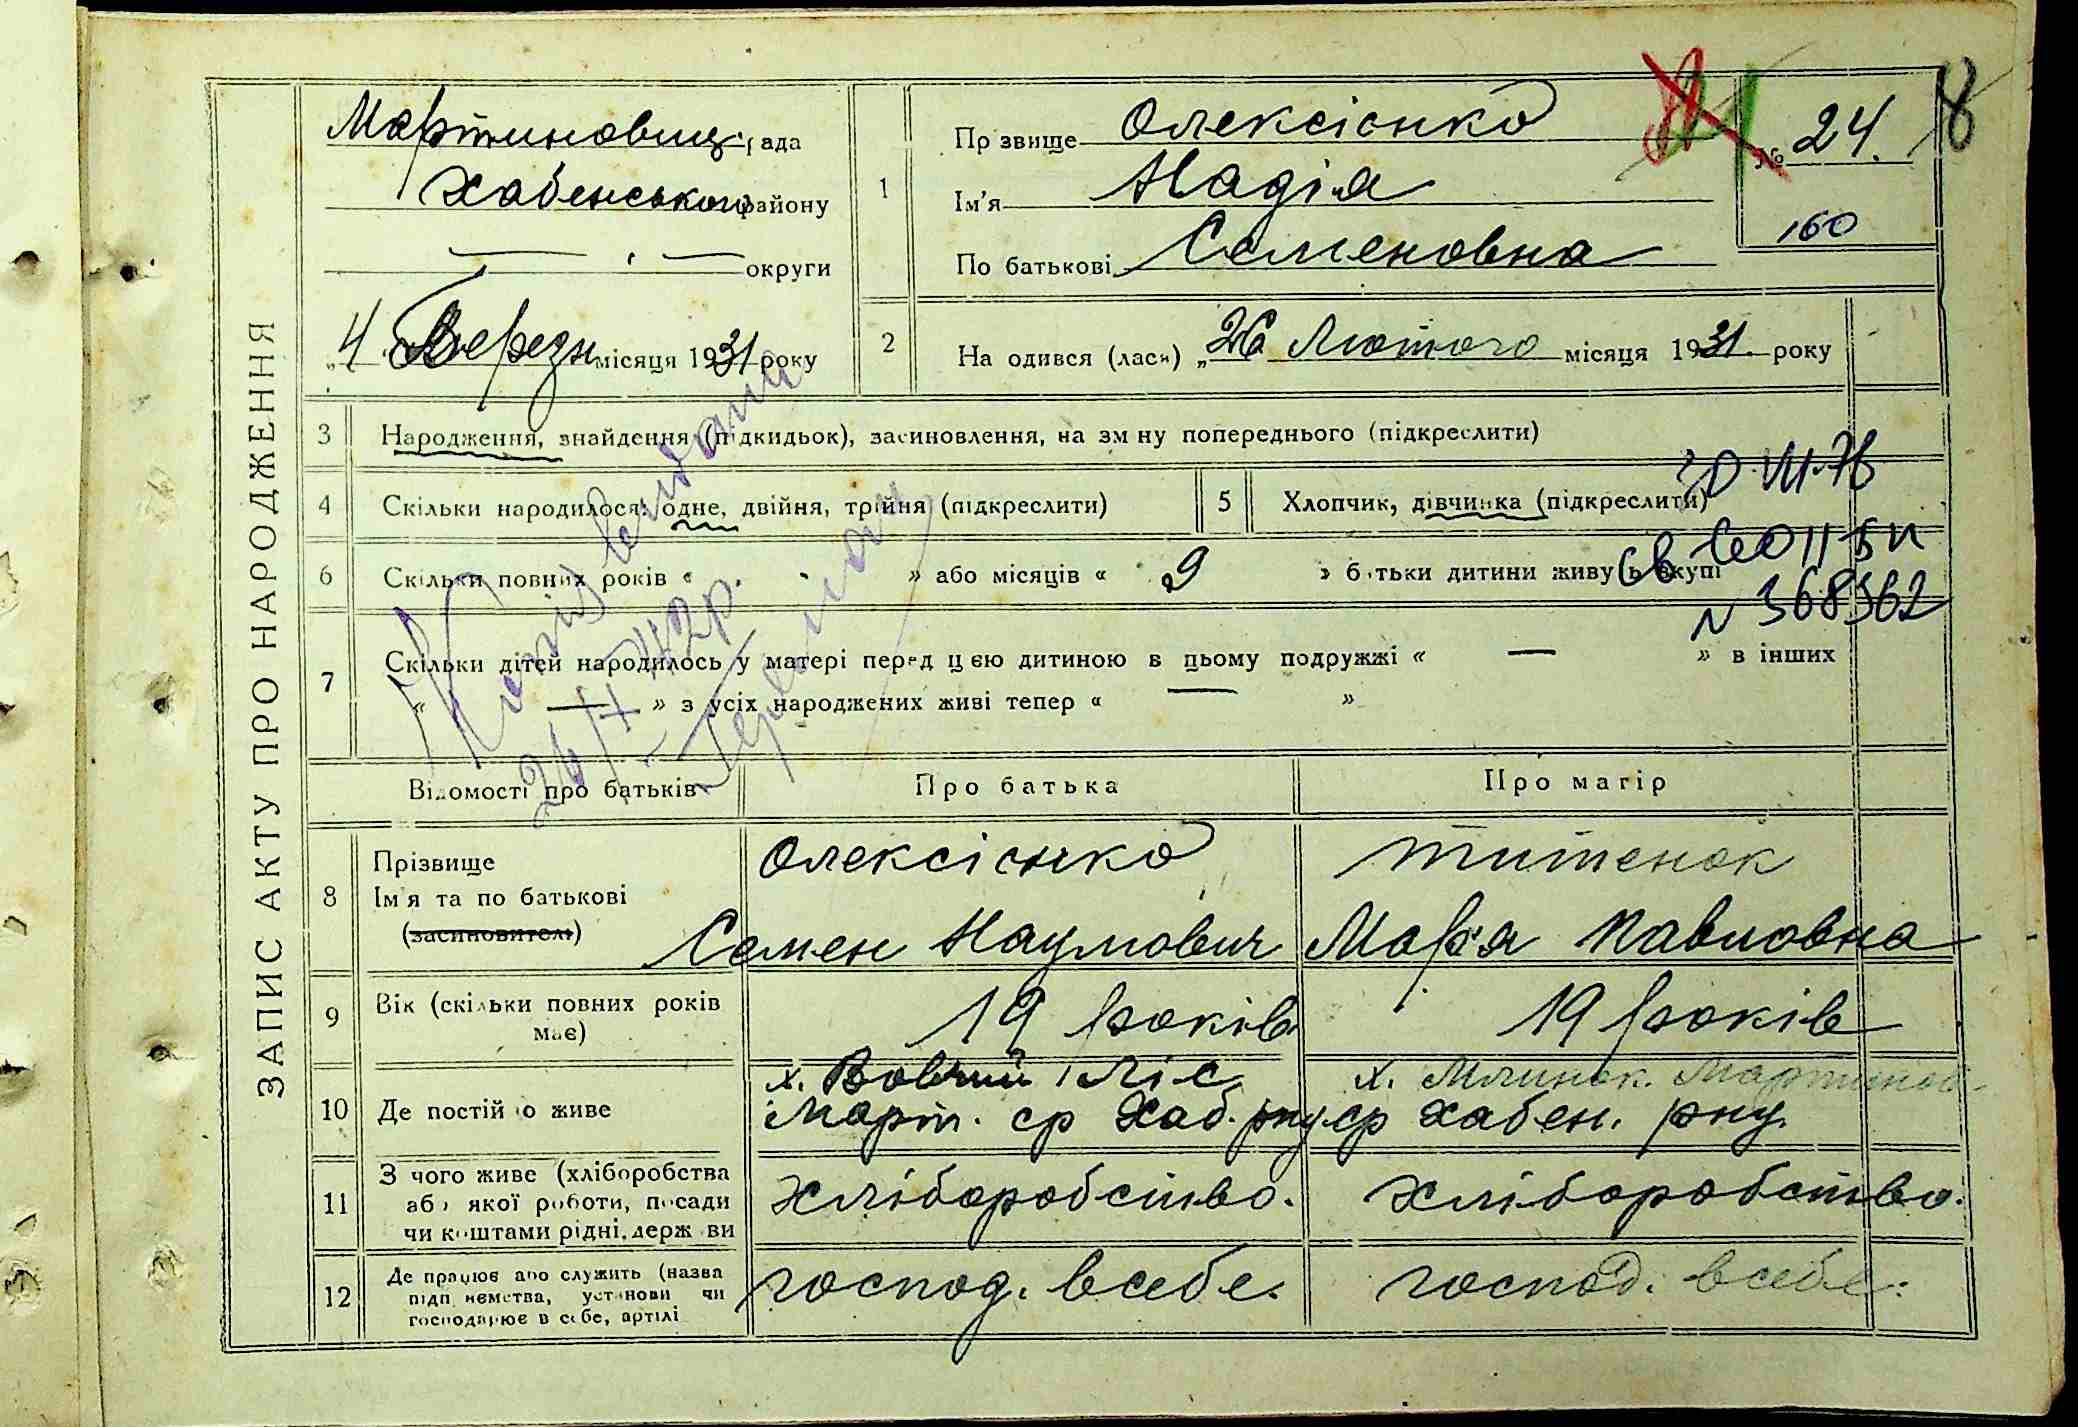 ЗАПИС АКТУ ПРО НАРОДЖЕННЯ
Мартиновиц. рада
Хабенського району
— . — округи
„4 Березн місяця 1931 року
1
Прізвище Олексієнко
Ім'я Надія
По батькові Семеновна
№ 24.
160
2
На одився (лася) „26 Лютого місяця 1931. року
3 Народження, знайдення (підкидьок), засиновлення, на зміну попереднього (підкреслити)
4 Скільки народилося: одне, двійня, трійня (підкреслити)
5 Хлопчик, дівчинка (підкреслити)
6 Скільки повних років « » або місяців « 9 » батьки дитини живуть вкупі
N 368562
7 Скільки дітей народилось у матері перед цією дитиною в цьому подружжі « — » в інших
« — » з усіх народжених живі тепер « — »
Копія видана
26/X 42р.
Відомості про батьків
Про батька
Про матір
8 Прізвище
Ім'я та по батькові
(засиновителі)
Олексієнко
Семен Наумович
Титенок
Марія Павловна
9 Вік (скільки повних років
має)
19 років
19 років
10 Де постійно живе
х. Вовчий Ліс
Март. ср Хаб. рну
х. Млинок. Мартинов-
ср Хабен. рну.
11 З чого живе (хліборобства
або якої роботи, посади
чи коштами рідні, держ ви
Хліборобство.
Хліборобство.
12 Де працює або служить (назва
підп иємства, установи чи
господарює в себе, артілі
господ. в себе.
господ. в себе.